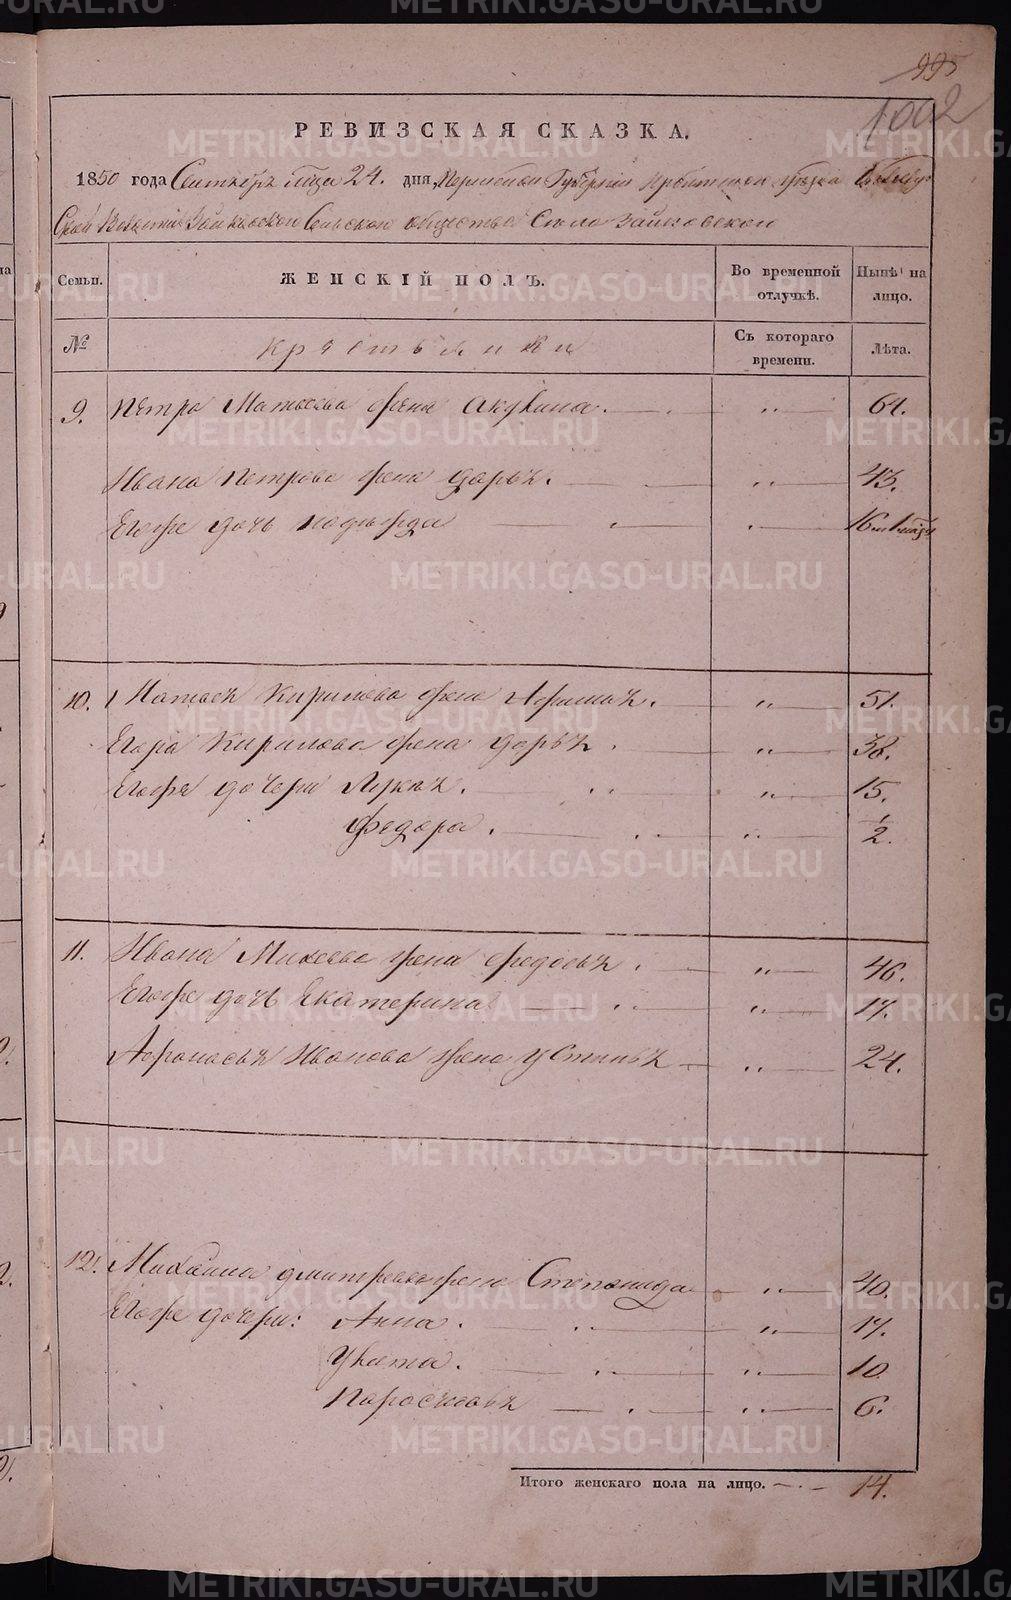 995
1002
РЕВИЗСКАЯ СКАЗКА.
1850 года Сентября м̃ца 24. дня Пермской Губернии Ирбитскаго уезда
Зайковскои Сельскои общества Село Зайковскои
Семьи. ЖЕНСКІЙ ПОЛЪ. Во временной отлучкѣ. Нынѣ на лицо.
№ крестьянки Съ котораго времени. Лѣта.
9. Петра Матвеева жена Акулина. „ 61.
Ивана Петрова жена Дарья. „ 43.
Егоже дочь Надежда „
10. Матвея Кирилова жена Афимья. „ 51.
Егора Кирилова жена Дарья. „ 38.
Егоже дочери Лукея. „ 15.
Федора. „ 1/2.
11. Ивана Михеева жена Федосья. „ 46.
Егоже дочь Екатерина „ 17.
Афонасья Иванова жена Устинья „ 24.
12. Михаила Дмитрева жена Степонида „ 40.
Егоже дочери: Анна. „ 17.
Улята. „ 10.
Паросковья „ 6.
Итого женскаго пола на лицо. 14.
METRIKI.GASO-URAL.RU